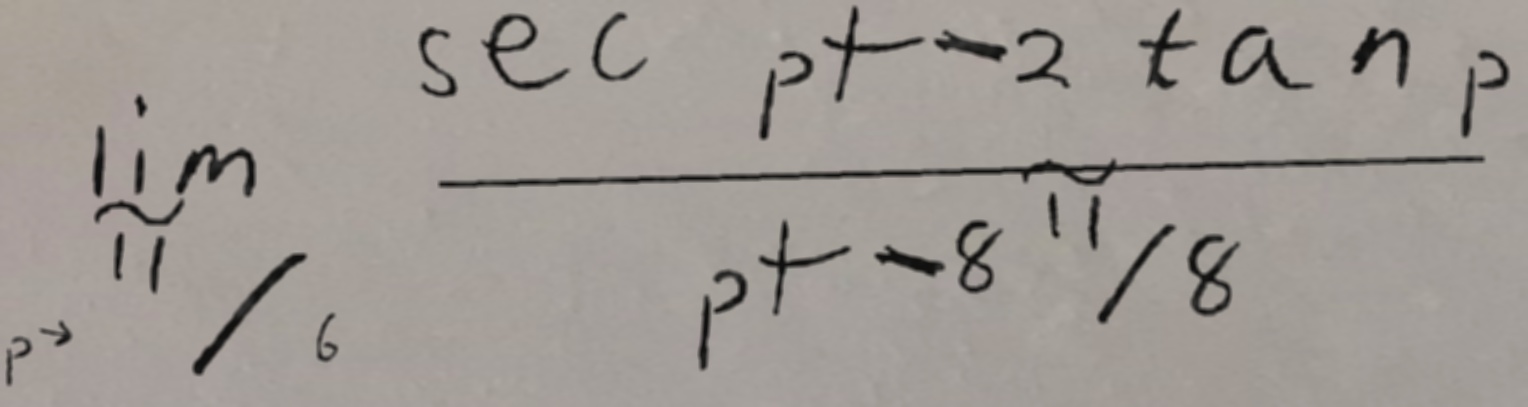 lim p→π/6 sec p+-2 tan p / p+-8π/8